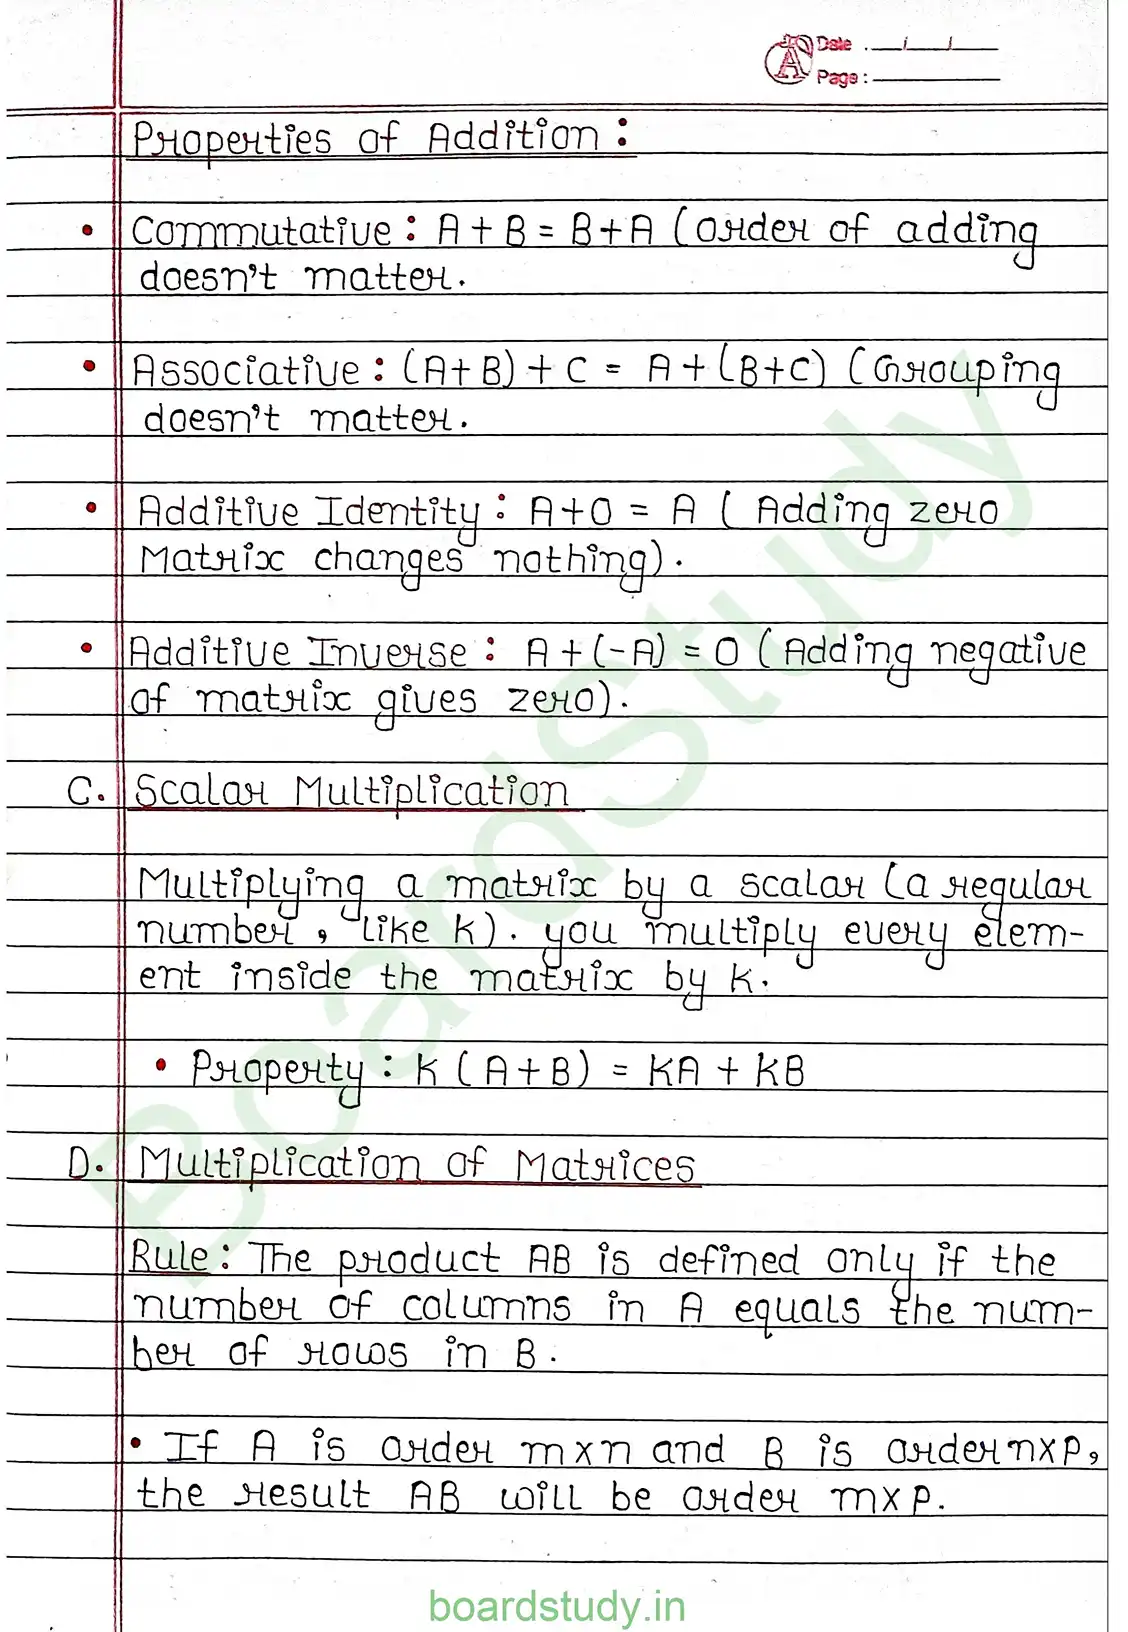 Date : __/__/__
Page :
Properties of Addition :
• Commutative : A + B = B + A (order of adding
doesn't matter.
• Associative : (A+B) + C = A + (B+C) (Grouping
doesn't matter.
• Additive Identity : A+O = A ( Adding zero
Matrix changes nothing).
• Additive Inverse : A + (-A) = O (Adding negative
of matrix gives zero).
C. Scalar Multiplication
Multiplying a matrix by a scalar (a regular
number, like k). you multiply every elem-
ent inside the matrix by k.
• Property : K (A+B) = KA + KB
D. Multiplication of Matrices
Rule : The product AB is defined only if the
number of columns in A equals the num-
ber of rows in B.
• If A is order m×n and B is order n×p,
the result AB will be order m×p.
BoardStudy
boardstudy.in